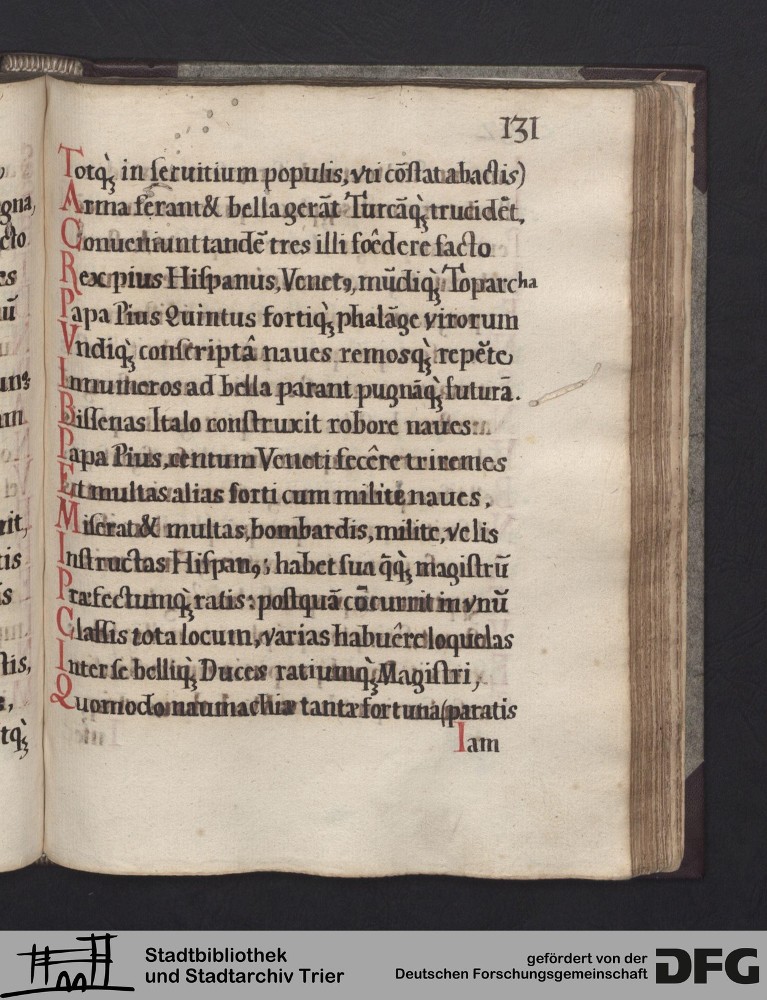 131
Totq́ꝫ in ſeruitium populis, vti cõſtat abactis)
Arma ferant & bella gerãt Turcãq́ꝫ trucidẽt,
Conueniunt tandẽ tres illi foêdere facto
Rex pius Hiſpanus, Venetꝰ, mũdiq́ꝫ Toparcha
Papa Pius Quintus fortiq́ꝫ phalãge virorum
Vndiq́ꝫ conſcriptâ naues remosq́ꝫ repẽte
Innumeros ad bella parant pugnãq́ꝫ futurã.
Biſſenas Italo conſtruxit robore naues:
Papa Pius, centum Veneti fecêre triremes
Et multas alias forti cum milite naues,
Miſerat & multas, bombardis, milite, velis
Inſtructas Hiſpanꝰ: habet ſua q̃q́ꝫ magiſtrũ
Præfectumq́ꝫ ratis: poſtquã cõcurrit in vnũ
Claſſis tota locum, varias habuêre loquelas
Inter ſe belliq́ꝫ Duces ratiumq́ꝫ Magiſtri,
Quomodo naumachiæ tantæ fortuna (paratis
Iam
gna,
cto
es
ũ
am
rit,
tis
is
ſtis,
tq́ꝫ
Stadtbibliothek
und Stadtarchiv Trier
gefördert von der
Deutschen Forschungsgemeinschaft
DFG